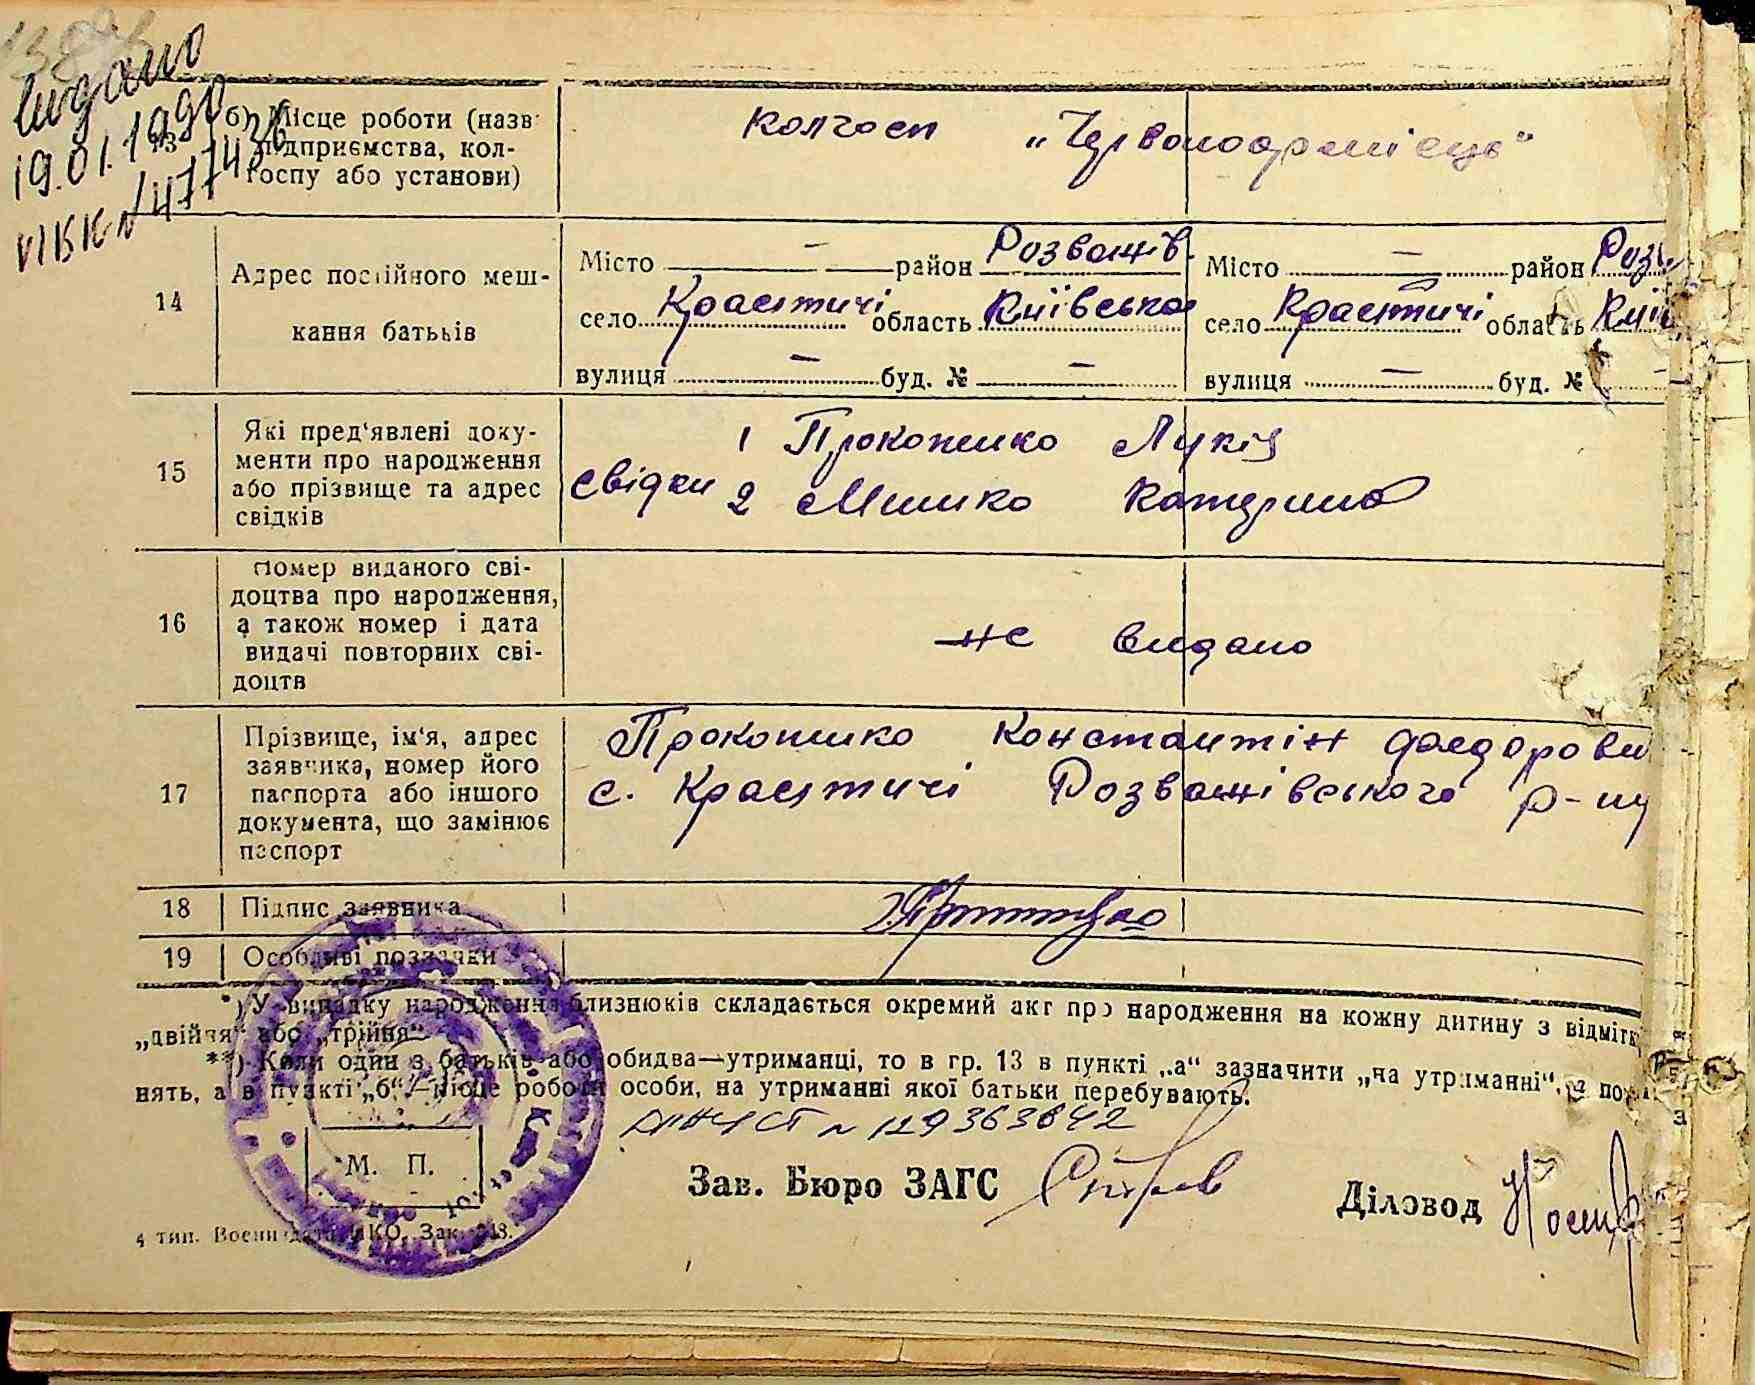 видано
19.01.1990
VI БК № 477436
13
б) Місце роботи (назв
підприємства, кол-
госпу або установи)
колгосп „Червоноармієць"
14
Адрес постійного меш-
кання батьків
Місто — район Розважів.
село Красятичі область Київська
вулиця — буд. № —
Місто — район Розв
село Красятичі область Киї
вулиця — буд. № —
15
Які пред'явлені доку-
менти про народження
або прізвище та адрес
свідків
свідки
1 Прокопенко
2 Катерина
16
Номер виданого сві-
доцтва про народження,
а також номер і дата
видачі повторних сві-
доцтв
не видано
17
Прізвище, ім'я, адрес
заявника, номер його
паспорта або іншого
документа, що замінює
паспорт
Прокопенко Константін Фаедорови
с. Красятичі Розважівського р-ну
18
Підпис заявника
19
Особливі позначки
*) У випадку народження близнюків складається окремий акт про народження на кожну дитину з відмітк
„двійня" або „трійня"
**) Коли один з батьків або обидва—утриманці, то в гр. 13 в пункті „а" зазначити „на утриманні", а по
нять, а в пункті „б"—місце роботи особи, на утриманні якої батьки перебувають.
№ 129363642
М. П.
Зав. Бюро ЗАГС
Діловод
4 тип. Воениздата НКО. Зак. 248.